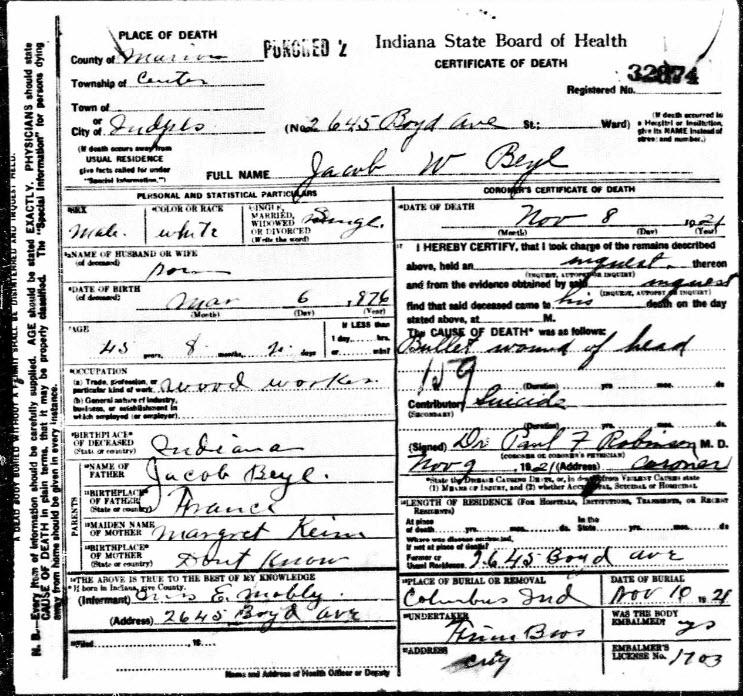 PLACE OF DEATH
County of Marion
Township of Center
Town of
or
City of Indpls
(If death occurs away from
USUAL RESIDENCE
give facts called for under
"Special Information.")
PUNCHED 2
Indiana State Board of Health
CERTIFICATE OF DEATH
Registered No.
(No. 2645 Boyd Ave St; Ward)
(If death occurred in
a Hospital or Institution,
give its NAME instead of
street and number.)
FULL NAME Jacob W Beyl
PERSONAL AND STATISTICAL PARTICULARS
SEX
Male
COLOR OR RACE
White
SINGLE,
MARRIED,
WIDOWED
OR DIVORCED
(Write the word)
Single
NAME OF HUSBAND OR WIFE
(of deceased)
DATE OF BIRTH
(of deceased)
Mar 6 1876
(Month) (Day) (Year)
AGE
45 years, 8 months, 2 days
If LESS than
1 day, hrs.
or min?
OCCUPATION
(a) Trade, profession, or
particular kind of work
wood worker
(b) General nature of industry,
business, or establishment in
which employed (or employer)
BIRTHPLACE
OF DECEASED
(State or country)
Indiana
PARENTS
NAME OF
FATHER
Jacob Beyl
BIRTHPLACE
OF FATHER
(State or country)
France
MAIDEN NAME
OF MOTHER
Margret Keim
BIRTHPLACE
OF MOTHER
(State or country)
Dont Know
THE ABOVE IS TRUE TO THE BEST OF MY KNOWLEDGE
* If born in Indiana, give County.
(Informant) E. Mobly
(Address) 2645 Boyd ave
Filed 19
Name and Address of Health Officer or Deputy
CORONER'S CERTIFICATE OF DEATH
DATE OF DEATH
Nov 8 1921
(Month) (Day) (Year)
I HEREBY CERTIFY, that I took charge of the remains described
above, held an inquest thereon
(INQUEST, AUTOPSY OR INQUIRY)
and from the evidence obtained by said inquest
(INQUEST, AUTOPSY OR INQUIRY)
find that said deceased came to his death on the day
stated above, at M.
The CAUSE OF DEATH* was as follows:
Bullet wound of head
159
(Duration) yrs. mos. ds.
Contributory Suicide
(SECONDARY)
(Duration) yrs. mos. ds.
(Signed) Dr. Paul F Robinson M. D.
(CORONER OR CORONER'S PHYSICIAN)
Nov 9 1921 (Address) coroner
*State the DISEASE CAUSING DEATH, or, in death from VIOLENT CAUSES state
(1) MEANS OF INJURY, and (2) whether ACCIDENTAL, SUICIDAL or HOMICIDAL
LENGTH OF RESIDENCE (FOR HOSPITALS, INSTITUTIONS, TRANSIENTS, OR RECENT
RESIDENTS)
At place
of death yrs. mos. ds.
In the
State yrs. mos. ds.
Where was disease contracted,
If not at place of death?
Former or
Usual Residence 2645 Boyd ave
PLACE OF BURIAL OR REMOVAL
Columbus Ind
DATE OF BURIAL
Nov 10 1921
UNDERTAKER
Bros
WAS THE BODY
EMBALMED? yes
ADDRESS
city
EMBALMER'S
LICENSE No. 1703
N. B.—Every item of information should be carefully supplied. AGE should be stated EXACTLY. PHYSICIANS should state
CAUSE OF DEATH in plain terms, that it may be properly classified. The "Special Information" for persons dying
away from home should be given in every instance.
A DEAD BODY BURIED WITHOUT A PERMIT SHALL BE DISINTERRED AND INQUEST HELD.